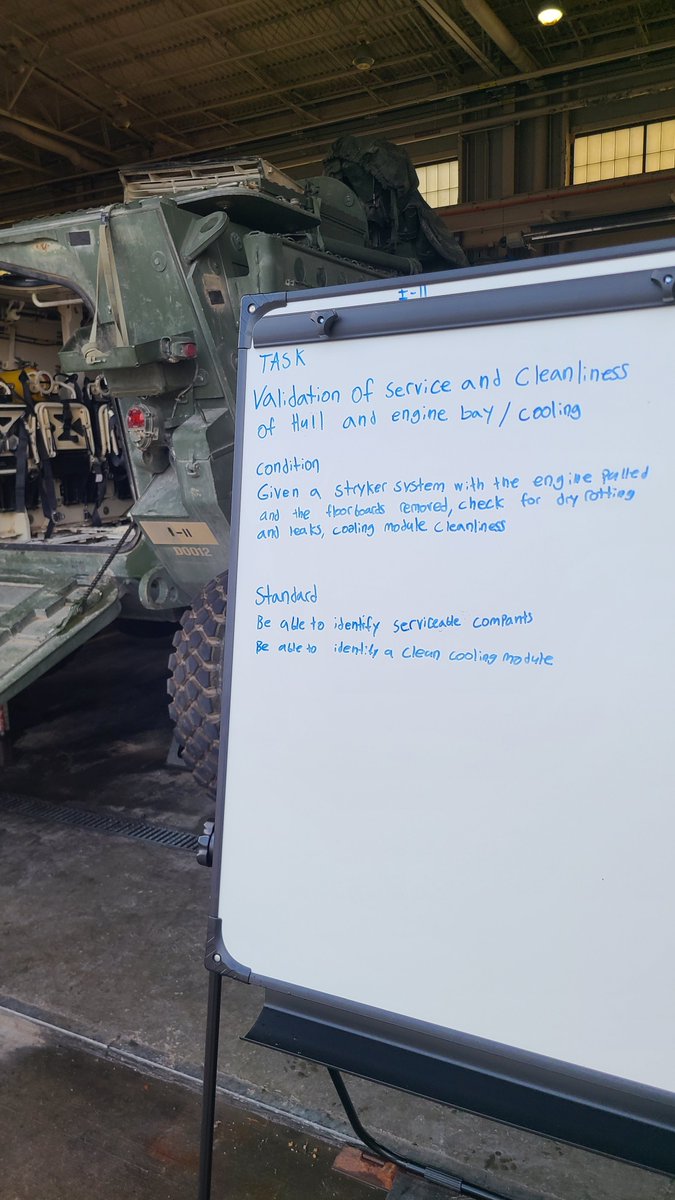 I-11
TASK
Validation of service and Cleanliness
of Hull and engine bay/cooling
condition
Given a stryker system with the engine pulled
and the floorboards removed, check for dry rotting
and leaks, cooling module cleanliness
Standard
Be able to identify serviceable compants
Be able to identify a clean cooling module
I-11
D0012